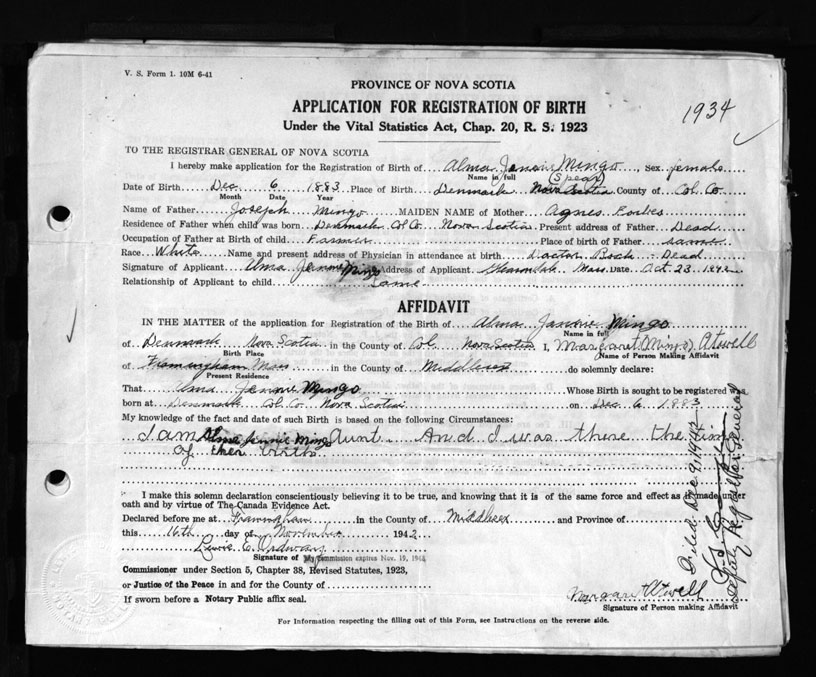 V. S. Form 1. 10M 6-41
PROVINCE OF NOVA SCOTIA
APPLICATION FOR REGISTRATION OF BIRTH
1934
Under the Vital Statistics Act, Chap. 20, R. S. 1923
TO THE REGISTRAR GENERAL OF NOVA SCOTIA
I hereby make application for the Registration of Birth of Alma Jennie Mingo, Sex female
Name in full (Spear)
Date of Birth Dec 6 1883 Place of Birth Denmark Nova Scotia County of Col. Co.
Month Date Year
Name of Father Joseph Mingo MAIDEN NAME of Mother Agnes Forbes
Residence of Father when child was born Denmark Col Co Nova Scotia Present address of Father Dead
Occupation of Father at Birth of child Farmer Place of birth of Father same
Race White Name and present address of Physician in attendance at birth Doctor - Dead
Signature of Applicant Alma Jennie Mingo Address of Applicant Mass Date Oct 23 1942
Relationship of Applicant to child Same
AFFIDAVIT
IN THE MATTER of the application for Registration of the Birth of Alma Jennie Mingo
Name in full
of Denmark Nova Scotia in the County of Col. Nova Scotia I, Margaret (Mingo) Atwell
Birth Place (Name of Person Making Affidavit
of Framingham Mass in the County of Middlesex do solemnly declare:
Present Residence
That Alma Jennie Mingo Whose Birth is sought to be registered was
born at Denmark Col. Co Nova Scotia on Dec 6 1883
My knowledge of the fact and date of such Birth is based on the following Circumstances:
I am Alma Jennie Mingo Aunt. And I was there the time
of her birth
I make this solemn declaration conscientiously believing it to be true, and knowing that it is of the same force and effect as if made under
oath and by virtue of The Canada Evidence Act.
Declared before me at Framingham in the County of Middlesex and Province of
this 16th day of November 1942
Lewis C. Ordway
Signature of My Commission expires Nov. 19,
Commissioner under Section 5, Chapter 38, Revised Statutes, 1923,
or Justice of the Peace in and for the County of
If sworn before a Notary Public affix seal.
Margaret Atwell
Signature of Person making Affidavit
For Information respecting the filling out of this Form, see Instructions on the reverse side.
Filed Dec 9, 1942
Deputy Registrar General